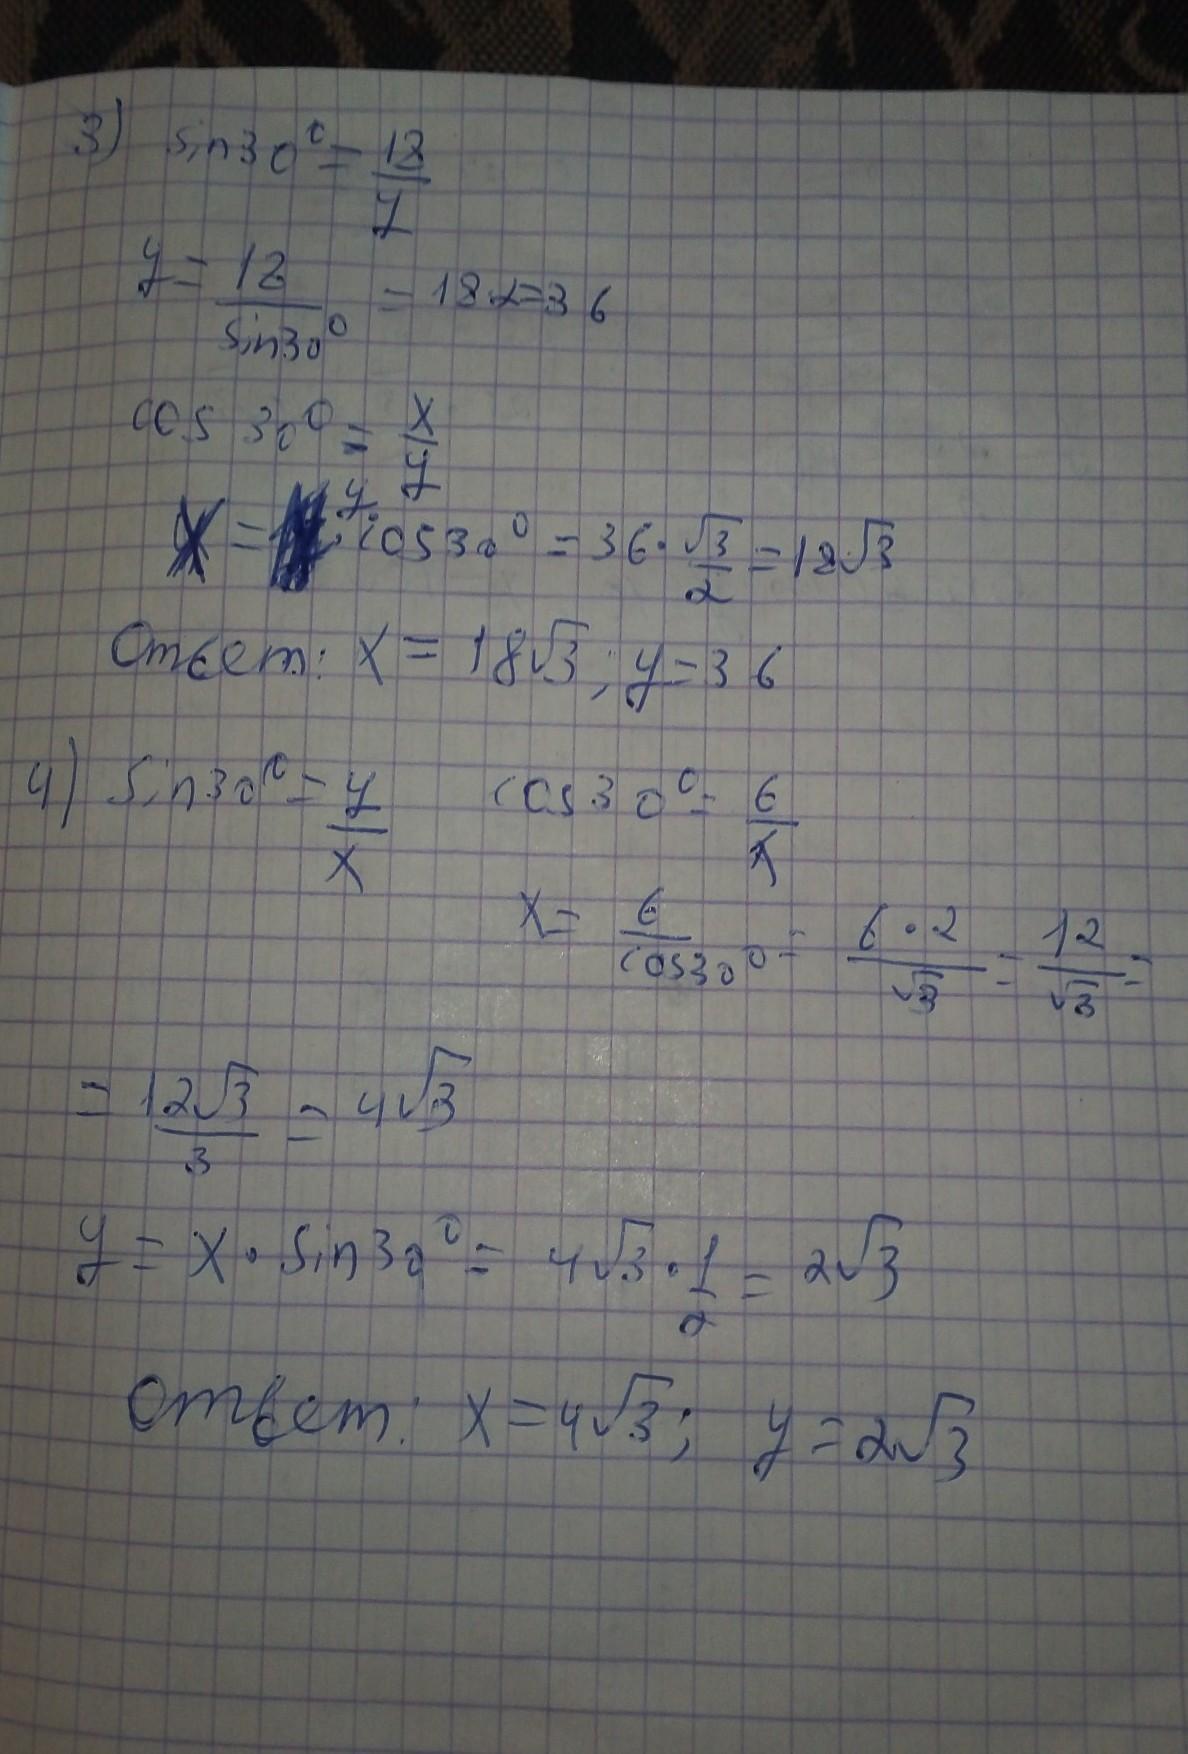 3) sin30° = 18/y
y = 18/sin30° = 18·2=36
cos 30° = x/y
x = y·cos30° = 36·√3/2 = 18√3
Ответ: x = 18√3; y=36
4) sin30° = y/x cos30° = 6/x
x = 6/cos30° = 6·2/√3 = 12/√3 =
= 12√3/3 = 4√3
y = x·sin30° = 4√3·1/2 = 2√3
Ответ: x=4√3; y=2√3